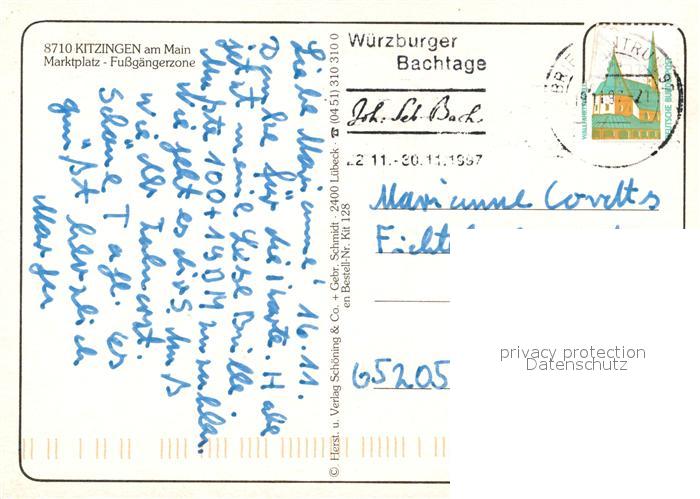 8710 KITZINGEN am Main
Marktplatz - Fußgängerzone
Liebe Marianne! 16.11.
Danke für die Karte. Habe
jetzt meine Lese Brille.
Mußte 100+190M zuzahlen.
Wie geht es dir? Muß
wie der Zahnarzt.
Schöne Tage. Es
grüßt herzlich
© Herst. u. Verlag Schöning & Co. + Gebr. Schmidt · 2400 Lübeck · ☎ (04 51) 310 310 0
en Bestell-Nr. Kit 128
Würzburger
Bachtage
Joh. Seb. Bach.
22 11.-30.11.1997
DEUTSCHE BUNDESPOST
Marianne
65205
privacy protection
Datenschutz